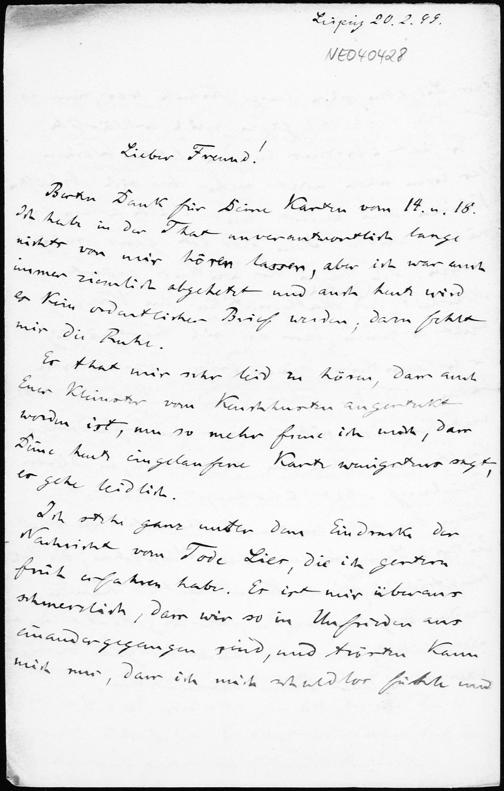 Leipzig 20.2.99.
NE040428
Lieber Freund!
Besten Dank für Deine Karten vom 14. u. 18.
Ich habe in der That unverantwortlich lange
nichts von mir hören lassen, aber ich war auch
immer ziemlich abgehetzt und auch heute wird
es kein ordentlicher Brief werden; dazu fehlt
mir die Ruhe.
Es that mir sehr leid zu hören, dass auch
Euer Kleinster vom Keuchhusten angesteckt
worden ist, um so mehr freue ich mich, dass
Deine heute eingelaufene Karte wenigstens sagt,
es gehe leidlich.
Ich stehe ganz unter dem Eindrucke der
Nachricht vom Tode Lies, die ich gestern
früh erfahren habe. Es ist mir überaus
schmerzlich, dass wir so in Unfrieden aus
einandergegangen sind, und trösten kann
mich nur, dass ich mich schuldlos fühle und